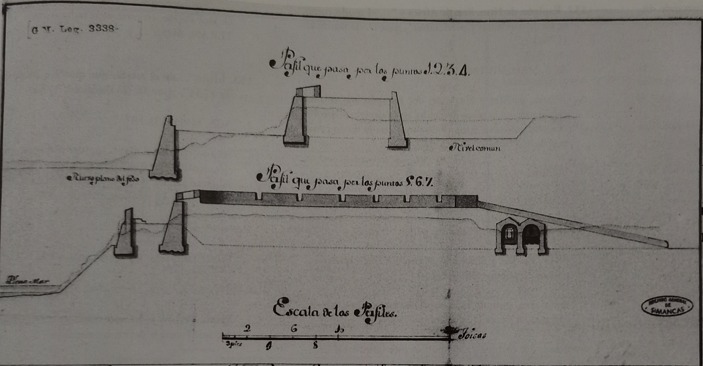 G M. Leg. 3338-
Perfil que pasa por los puntos 1.2.3.4.
Nivel comun
Nuevo plano del foso
Perfil que pasa por los puntos 5.6.7.
Plena mar
Escala de los Perfiles.
2 6
3 pies 9 Toesas
ARCHIVO GENERAL
DE
SIMANCAS